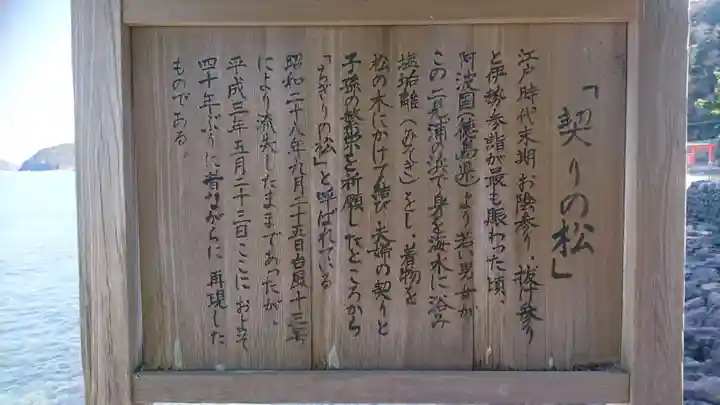 「契りの松」
江戸時代末期 お陰参り・抜け参り
と伊勢参詣が最も賑わった頃、
阿波国(徳島県)より若い男女が
この二見浦の浜で身を海水に浴み
塩垢離(かきぎ)をし、着物を
松の木にかけて結び夫婦の契りと
子孫の繁栄を祈願したところから
「ちぎりの松」と呼ばれている
昭和二十八年九月二十五日台風十三号
により流失したままであったが、
平成三年五月二十三日ここに およそ
四十年ぶりに昔ながらに 再現した
ものである。